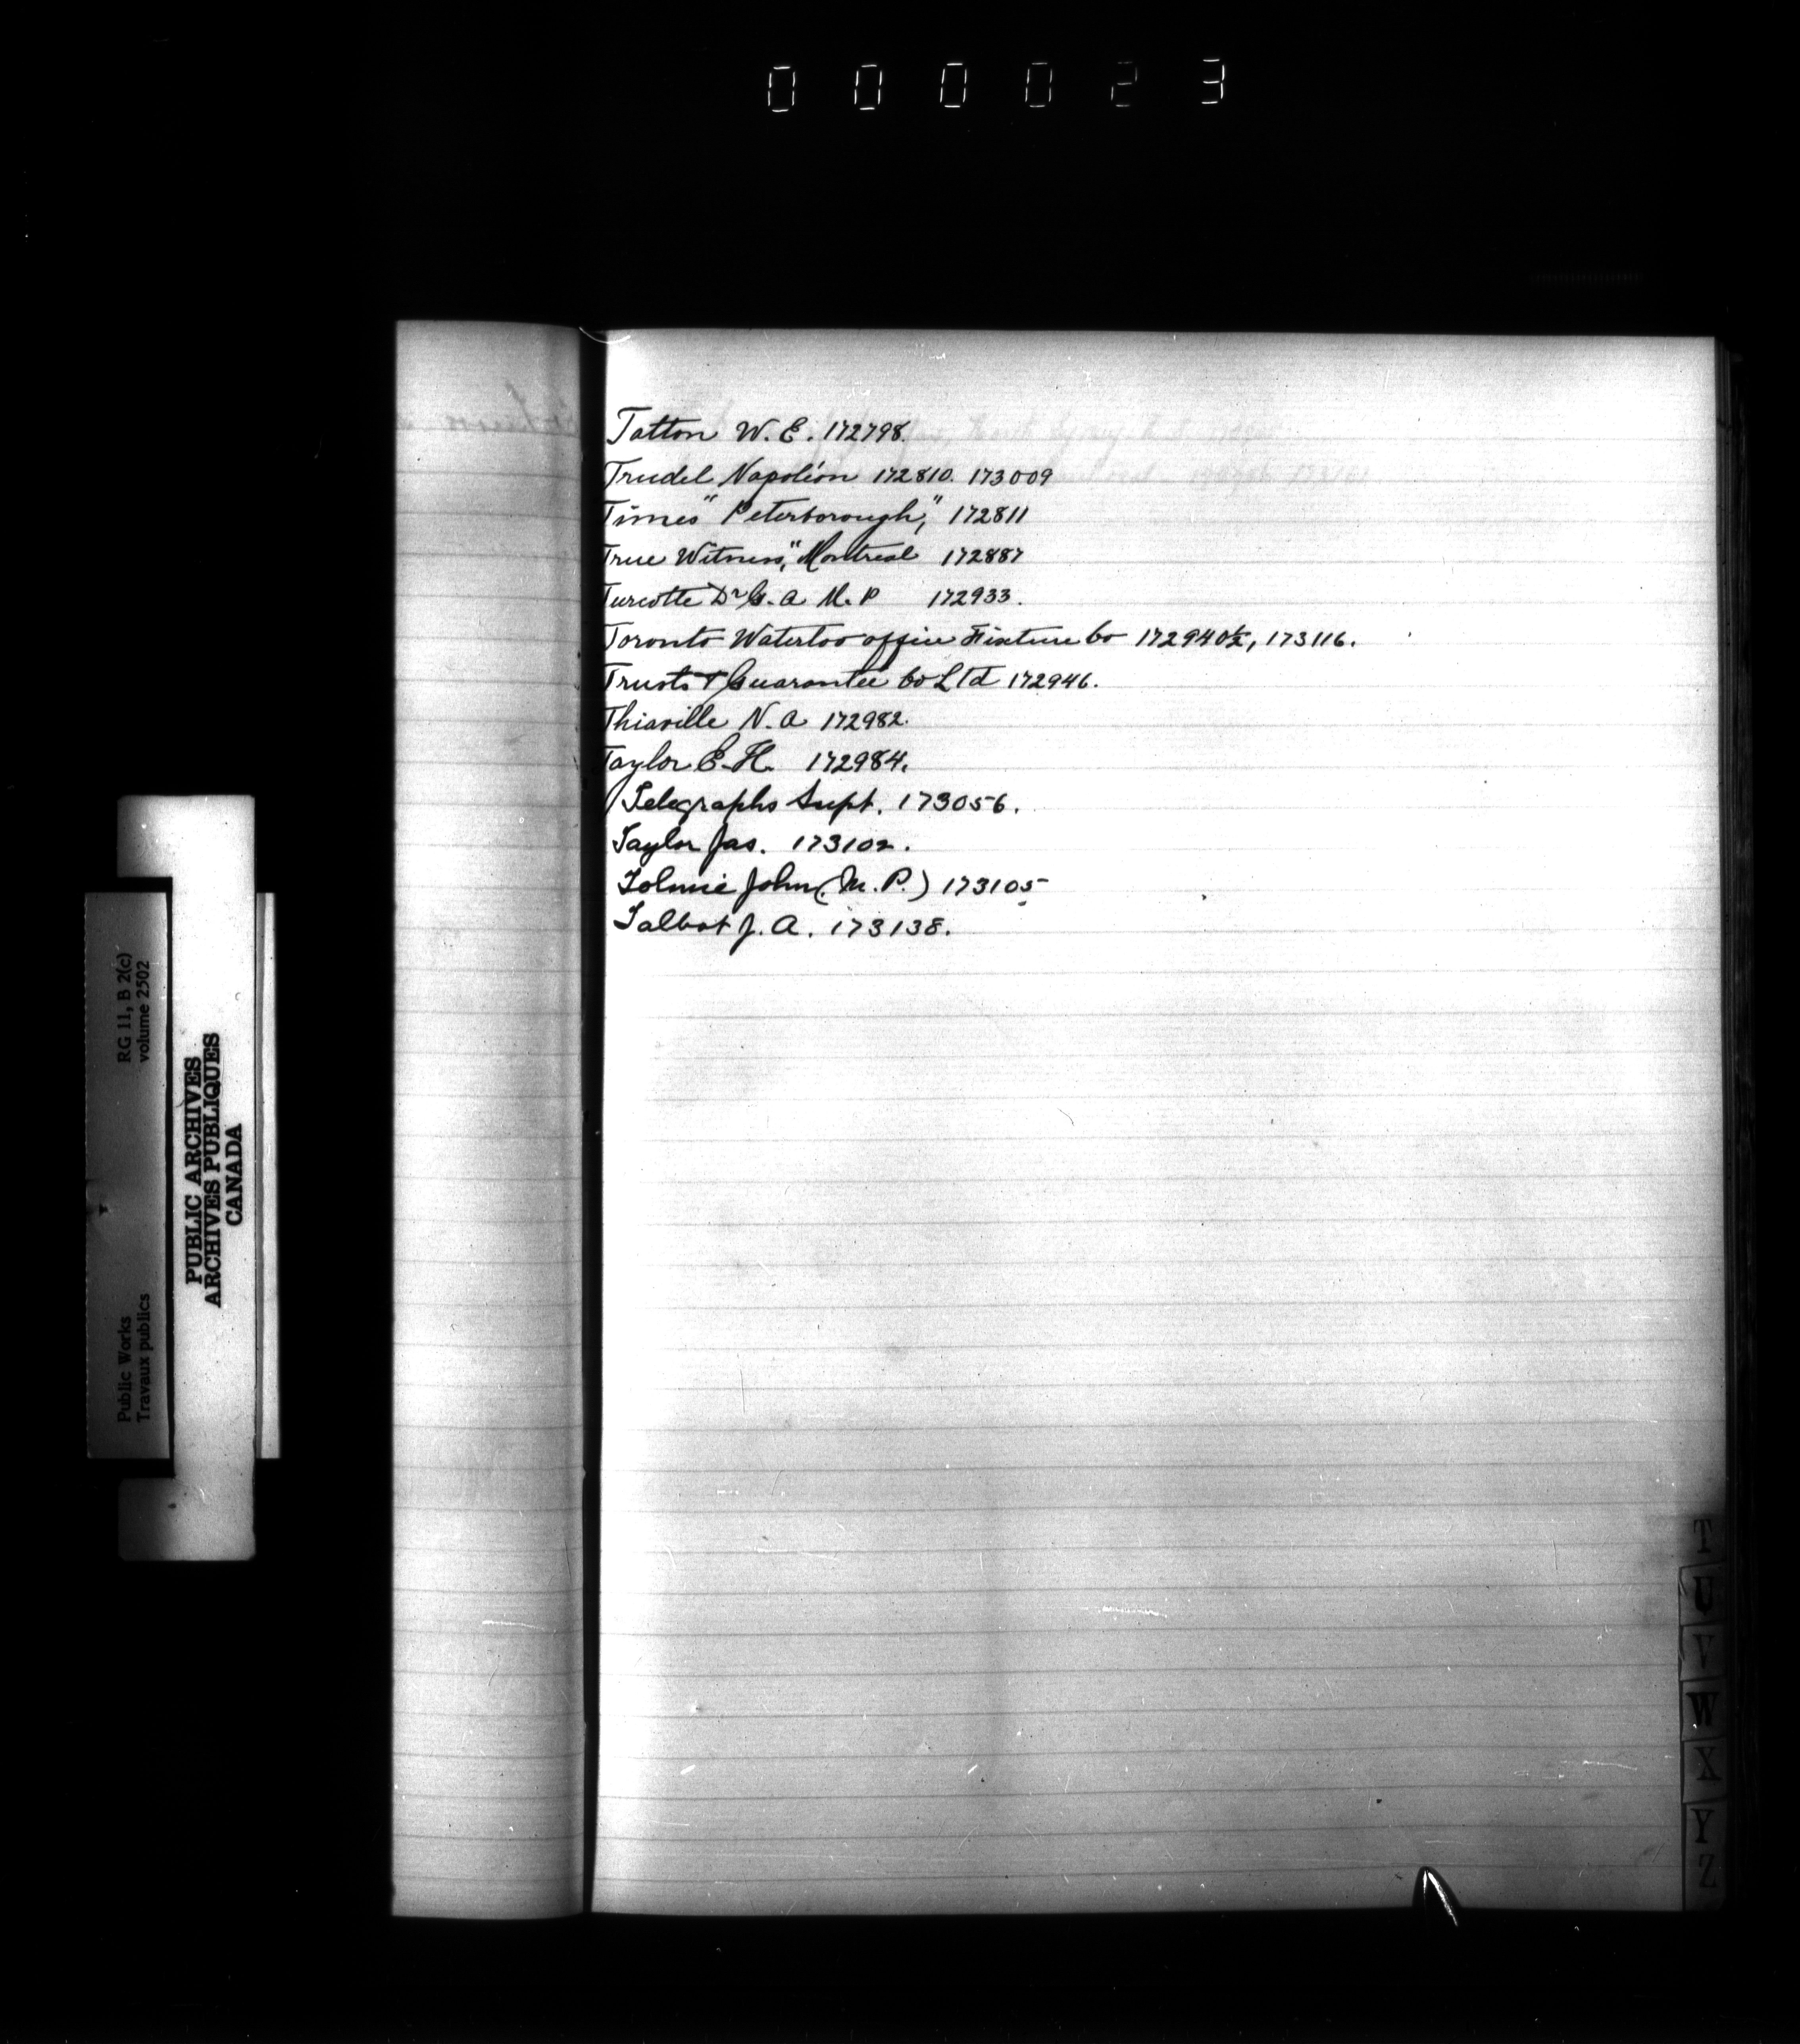 000023
Tatton W. E. 172798.
Trudel Napoléon 172810. 173009
Times "Peterborough," 172811
True Witness," Montreal 172887
Turcotte Dr G. A M. P 172933.
Toronto Waterloo office Fixture Co 172940½, 173116.
Trusts & Guarantee Co Ltd 172946.
Thiaville N. A 172982.
Taylor E. H. 172984.
Telegraphs Supt. 173056.
Taylor Jas. 173102.
Tolmie John (M. P.) 173105
Talbot J. A. 173138.
RG 11, B 2(c)
volume 2502
Public Works
Travaux publics
PUBLIC ARCHIVES
ARCHIVES PUBLIQUES
CANADA
T
U
V
W
X
Y
Z